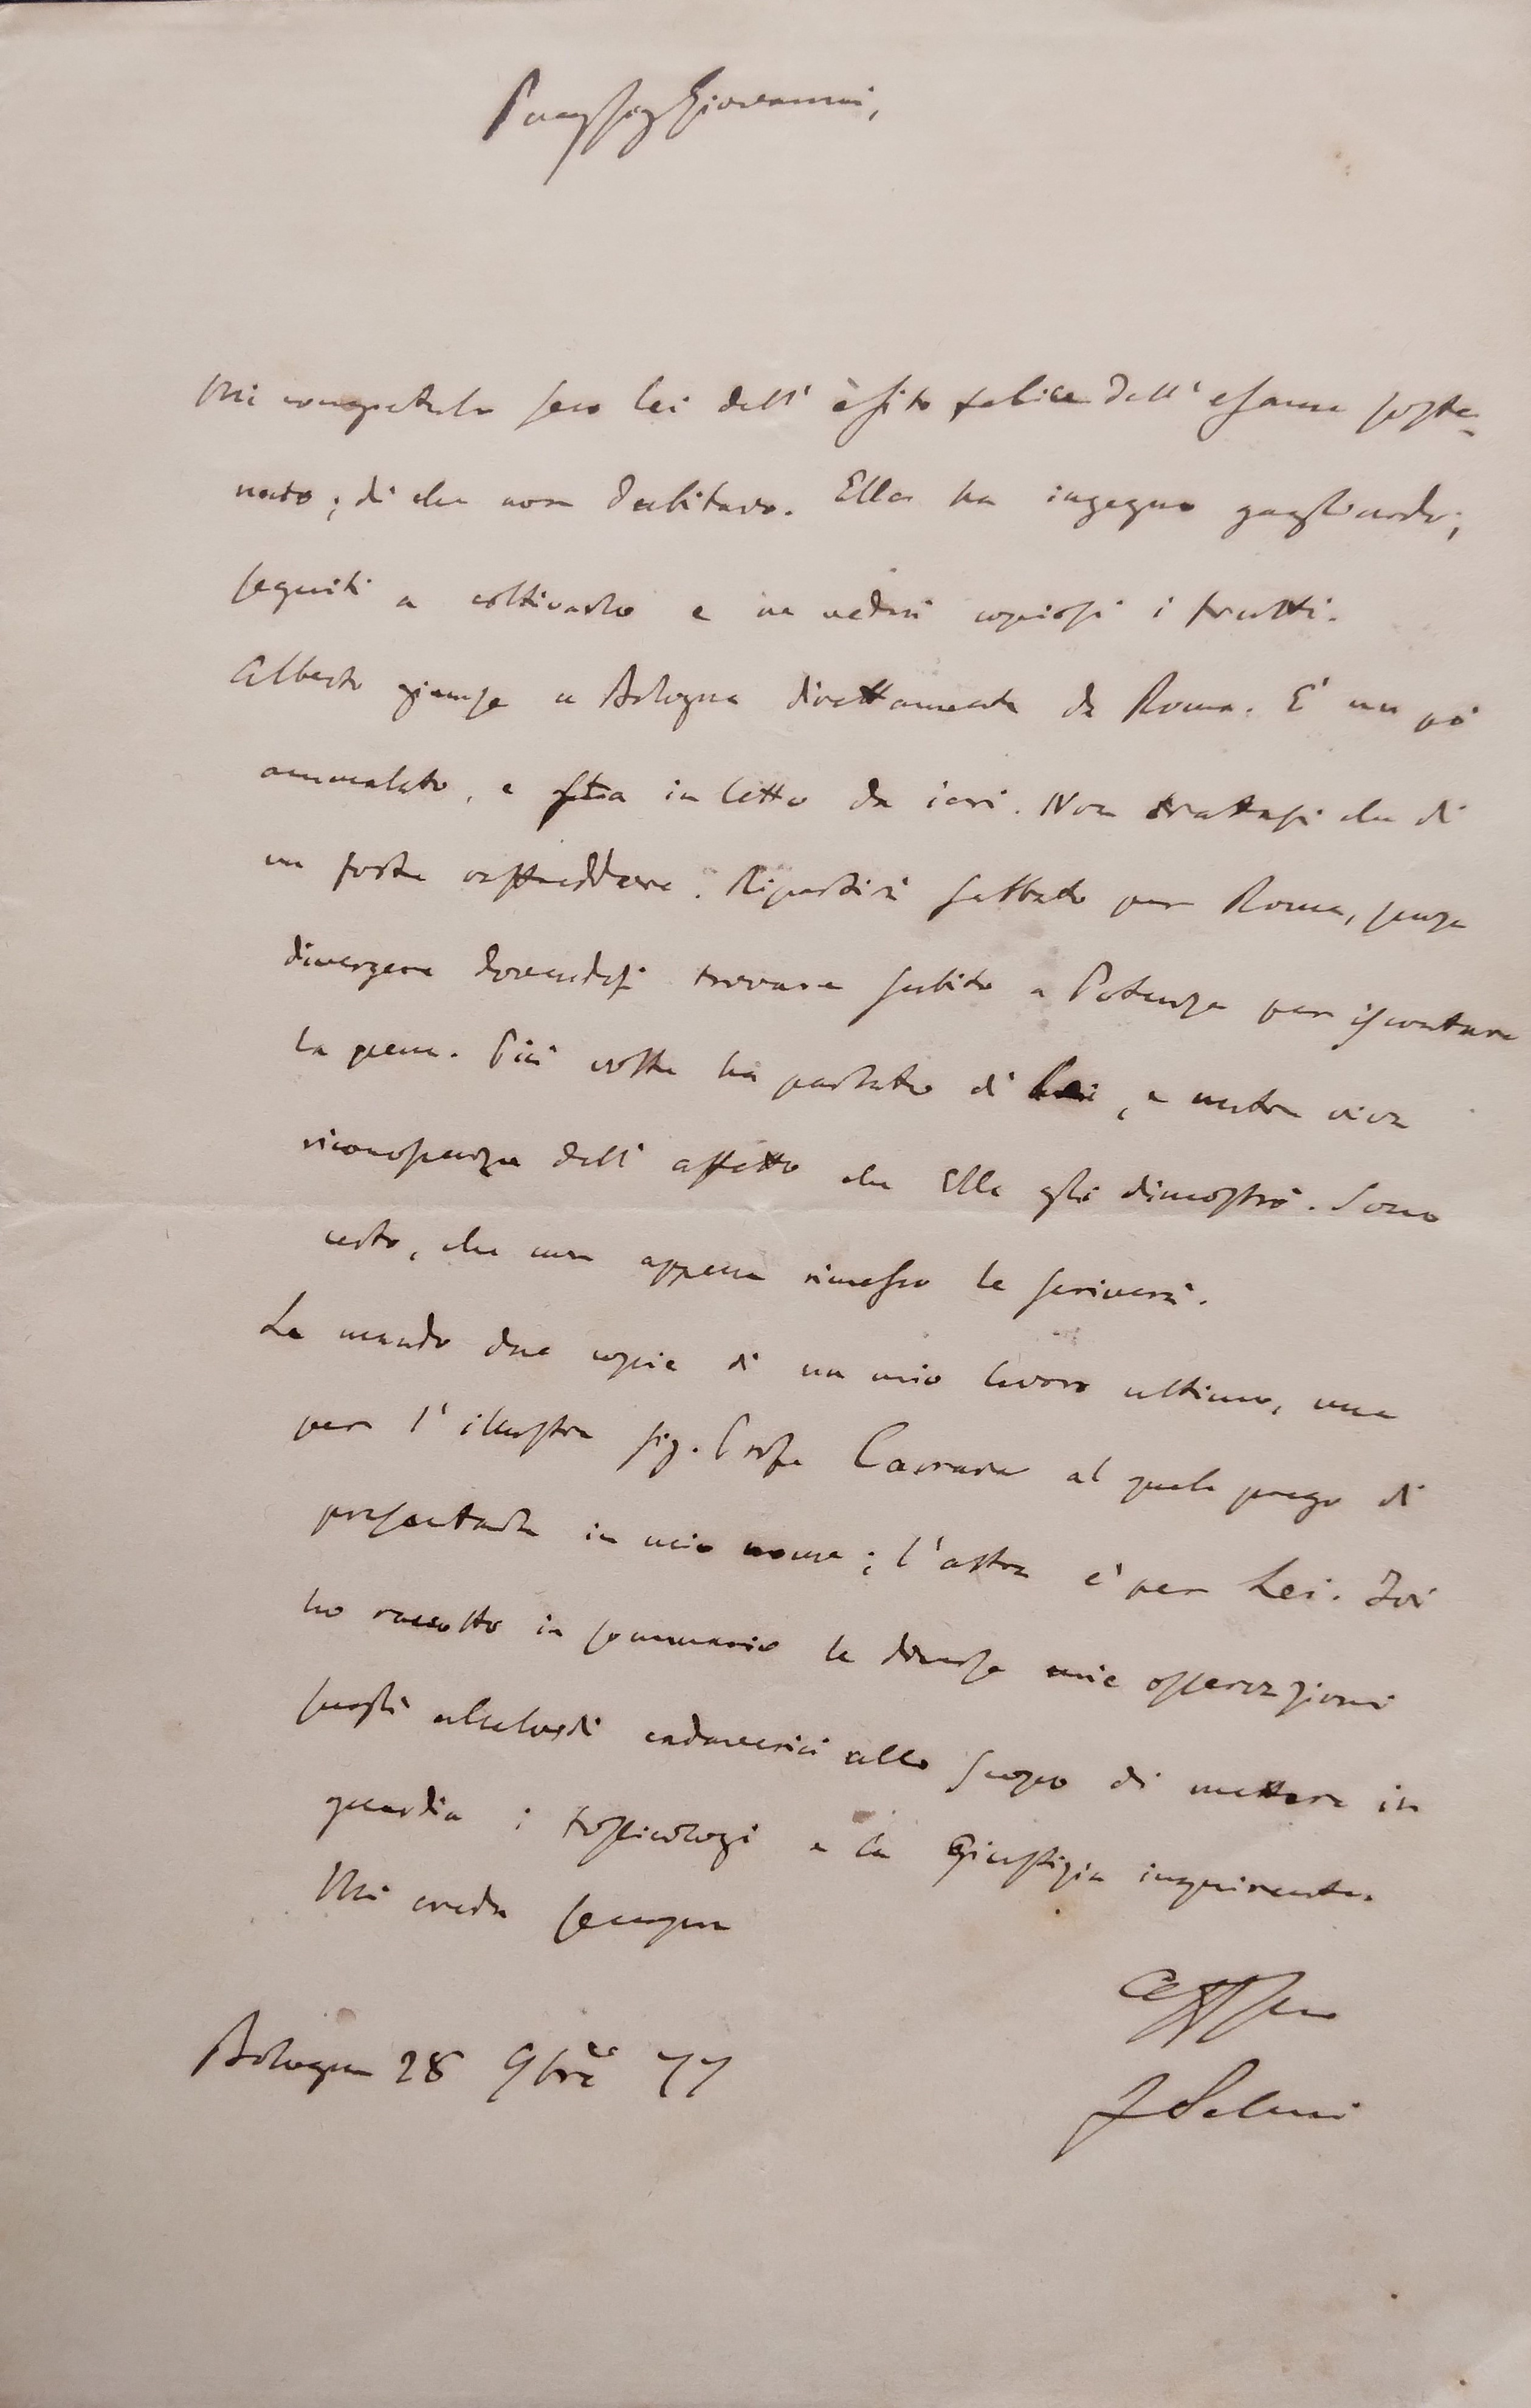 Preg Sig Giovanni,
Mi congratulo seco lei dell' èsito felice dell' esame soste-
nuto; di che non dubitavo. Ella ha ingegno gagliardo;
seguiti a coltivarlo e ne vedrà copiosi i frutti.
Alberto giunse a Bologna direttamente da Roma. E' un pò
ammalato, e stia in letto da ieri. Non trattasi che di
un forte raffreddore. Ripartirà sabbato per Roma, senza
divergere dovendosi trovare subito a Potenza per iscontare
la pena. Più volte ha parlato di Lei, e nutre viva
riconoscenza dell' affetto che Ella gli dimostrò. Sono
certo, che non appena rimesso le scriverà.
Le mando due copie di un mio lavoro ultimo, una
per l' illustre sig. Profe Carrara al quale prego di
presentarla in mio nome; l'altra è per Lei. Ivi
ho raccolto in sommario le diverse mie osservazioni
sugli alcaloidi cadaverici allo scopo di mettere in
guardia i tossicologi e la Giustizia inquirente.
Mi creda sempre
Aff Suo
F Selmi
Bologna 28 9bre 77